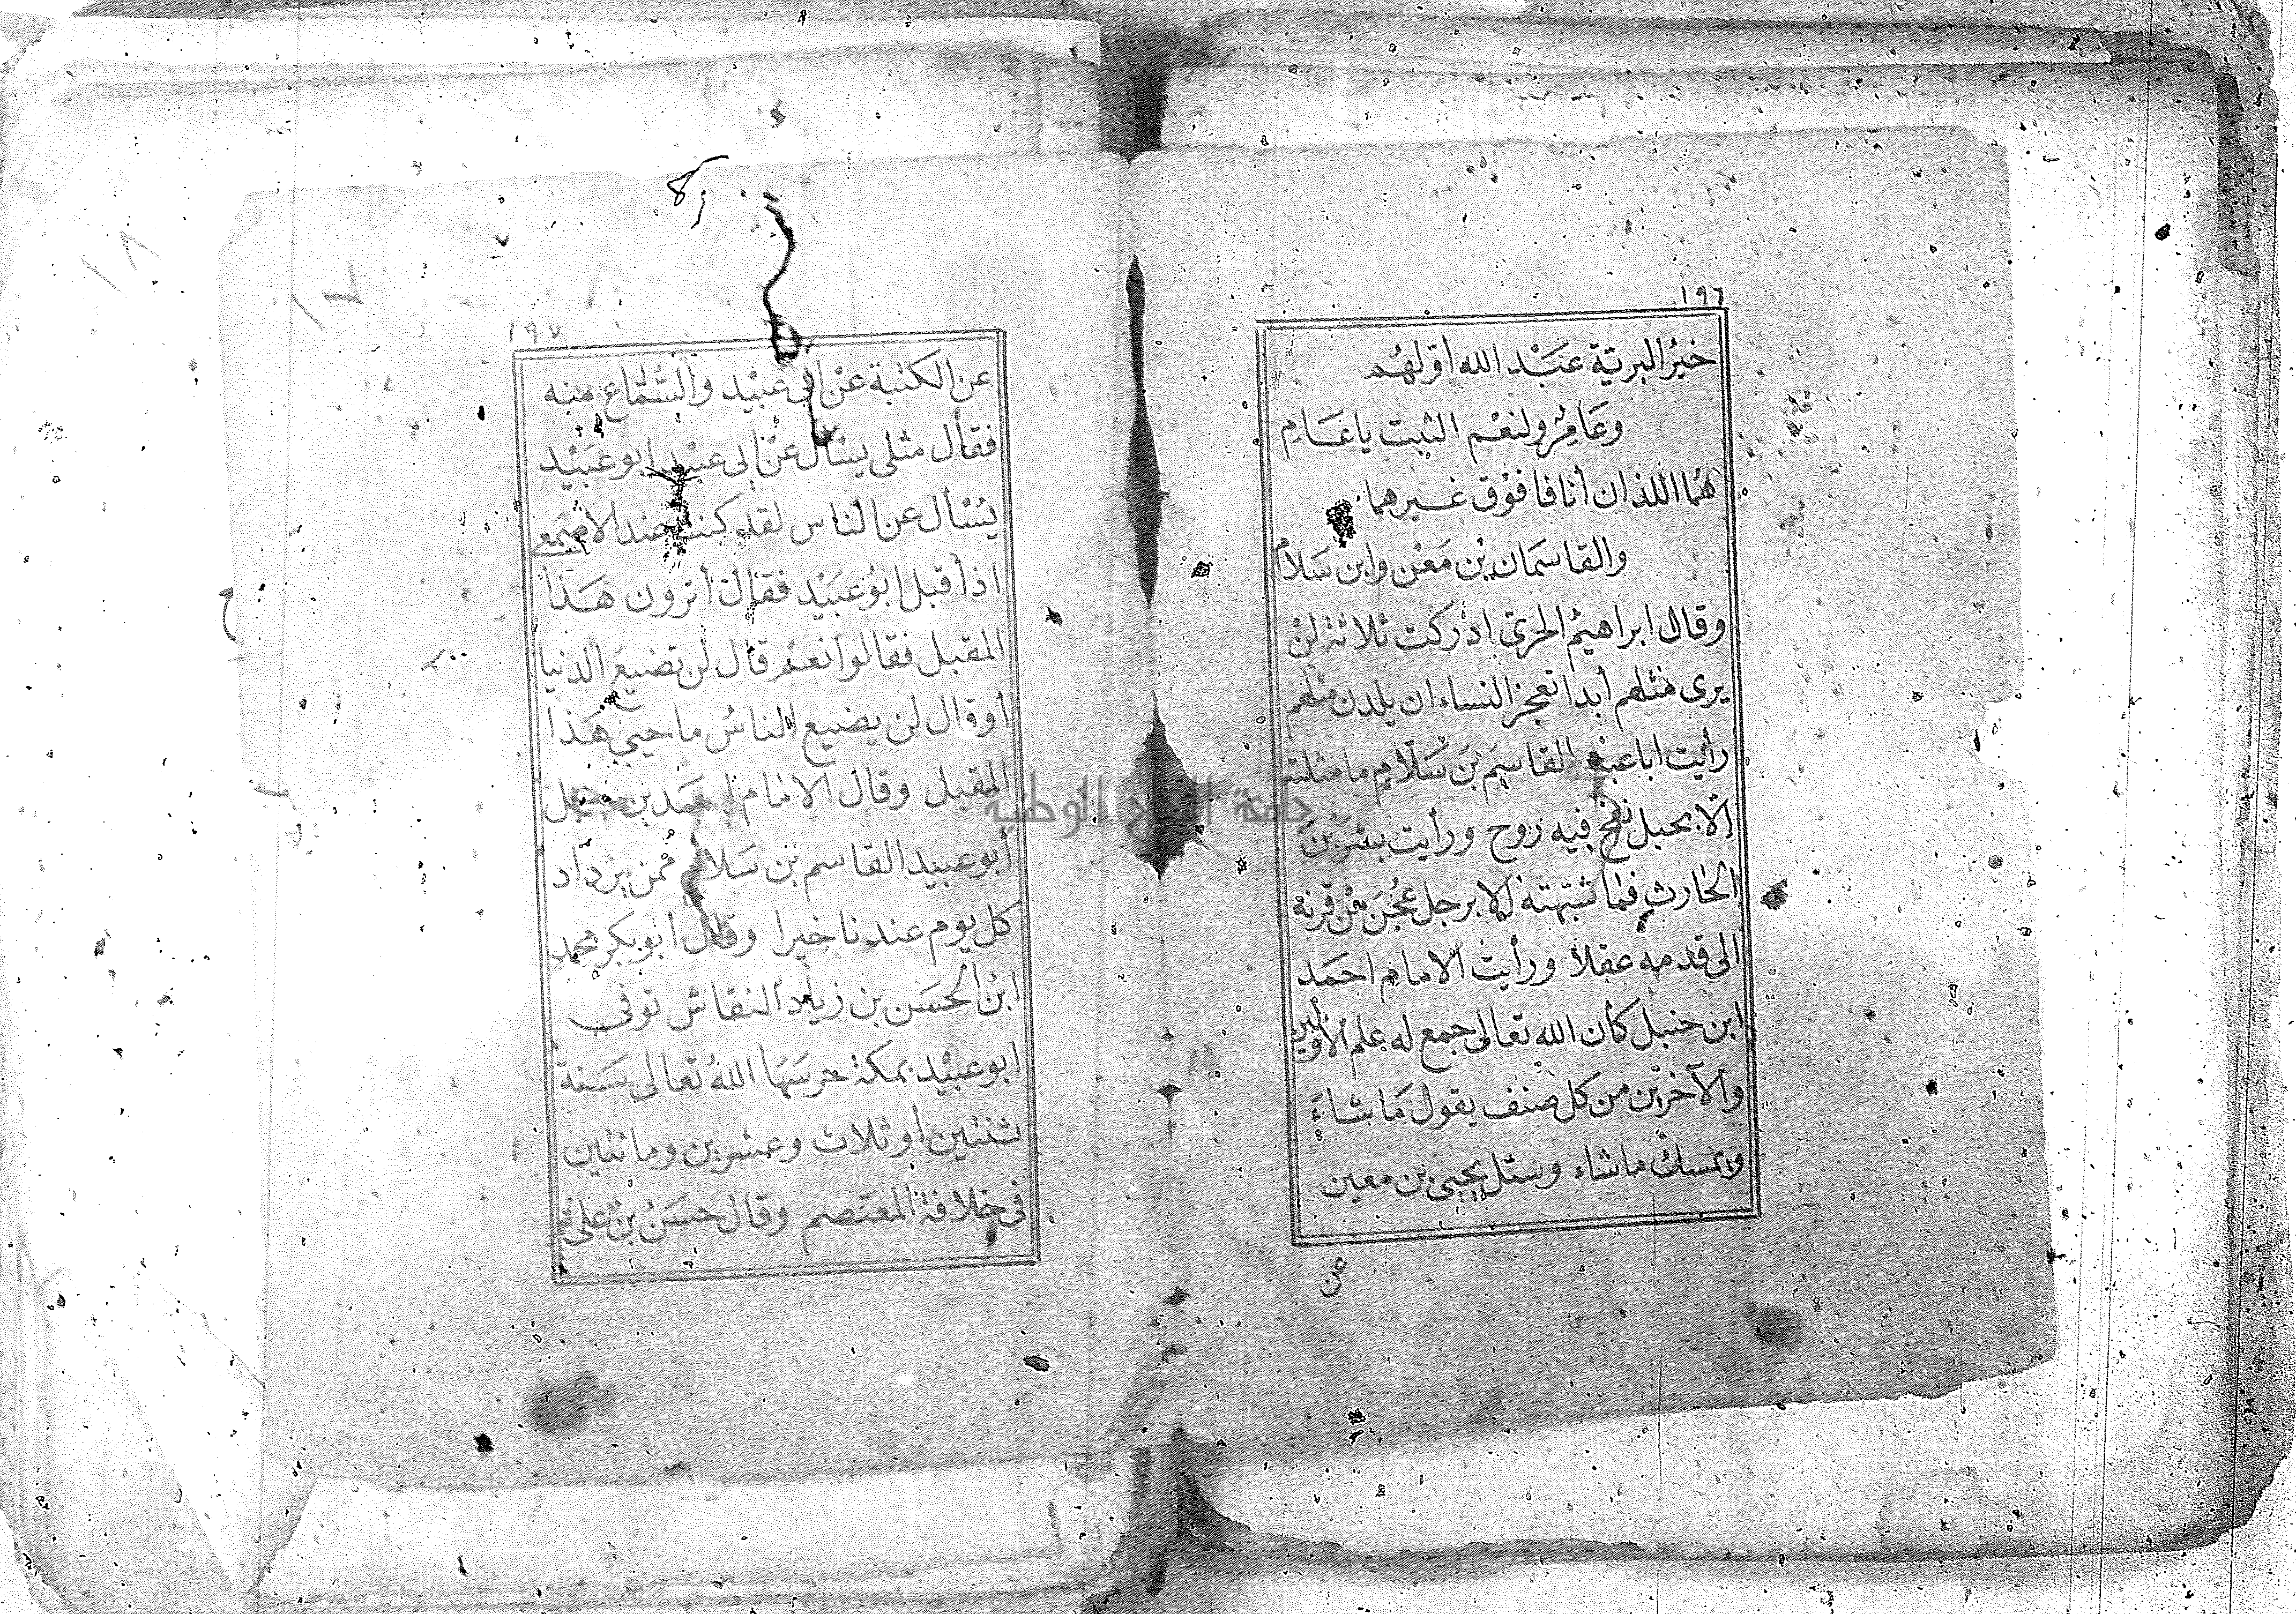 ١٩٦
خيرُ البريّة عَبْد الله أوّلهُم
وعَامِرٌ ولنعْم الثبت يا عَامِ
هُما اللذان أنافا فوْق غيرهما
والقاسَمان بْن مَعْن وابن سَلاّم
وقال ابراهيمُ الحربيّ ادْركت ثلاثة لنْ
يرى مثلهم أبدا تعجز النساء ان يلدن مثلهم
رأيت ابا عبيد القاسَم بْن سَلّام ما مثلته
الّا بجبل نفخ فيه روح ورأيت بشر بْن
الحارث فما شبّهته الا برجل عُجنَ مِن قرنه
الى قدمه عقلا ورأيت الامام احمَد
ابن حنبل كأن الله تعالى جمع له علم الأوّلين
والآخرين من كل صنف يقول مَا شاءَ
ويمسك ما شاء وسئل يحيى بن معين
عن
١٩٧
عن الكتبة عنْ ابى عبيْد والسَّماع منه
فقال مثلى يسْأل عنْ ابى عبيْد ابو عبَيْد
يُسْأل عن الناس لقد كنت عند الاصمَعى
اذ أقبل ابُو عبَيْد فقال أترون هَذا
المقبل فقالوا نعَم قال لن تضيعَ الدنيا
أو قال لن يضيع الناسُ ما حييَ هَذا
المقبل وقال الامام احمَد بن حنبل
أبو عبيد القاسم بن سَلام ممن يزداد
كل يوم عندنا خيرا وقال أبو بكر محمد
ابْن الحسَن بن زياد النقاش توفي
ابو عبيْد بمكة حرسَهَا اللهُ تعالى سَنة
ثنتين أو ثلاث وعشرين ومائتين
في خلافة المعتصم وقال حسَنُ بْن علىّ
جامعة النجاح الوطنية